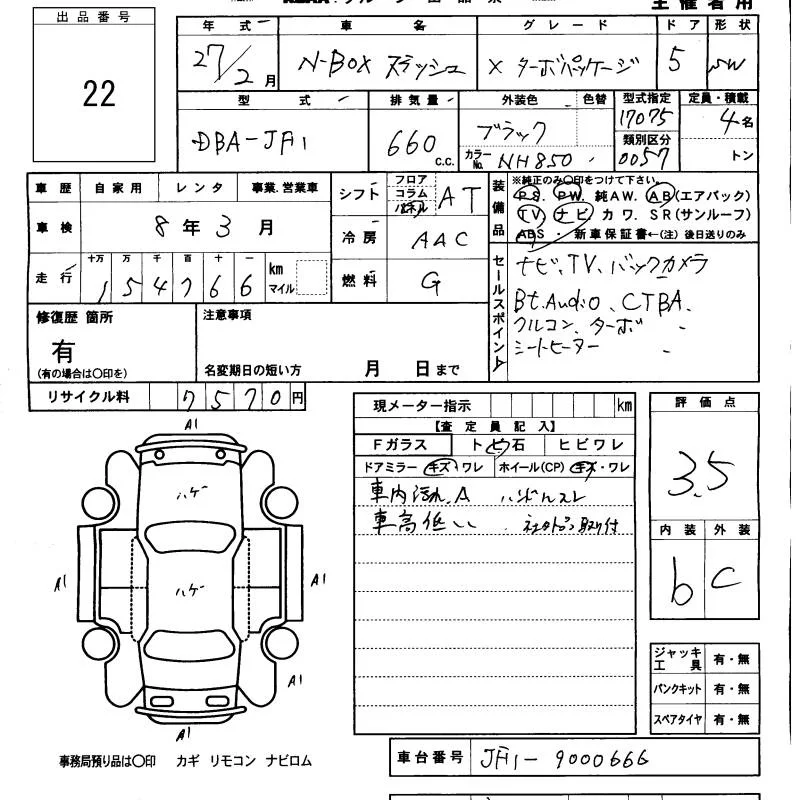 出品番号
22
主催者用
年式 車名 グレード ドア 形状
27/2月 N-BOX スラッシュ X ターボパッケージ 5 SW
型式 排気量 外装色 色替 型式指定 定員・積載
DBA-JF1 660 c.c. ブラック 17075 4名
カラーNo. NH850 類別区分 0057 トン
車歴 自家用 レンタ 事業.営業車
車検 8年3月
走行 十万 万 千 百 十 一
154766 km マイル
シフト フロア コラム パネル AT
冷房 AAC
燃料 G
装備品
※純正のみ〇印をつけて下さい。
PS. PW. 純AW. AB(エアバック)
TV ナビ カワ. SR(サンルーフ)
ABS・新車保証書←(注)後日送りのみ
セールスポイント
ナビ、TV、バックカメラ
Bt.Audio、CTBA、
クルコン、ターボ
シートヒーター
修復歴 箇所
有
(有の場合は〇印を)
注意事項
名変期日の短い方 月 日まで
リサイクル料 7570円
現メーター指示 km
【査定員記入】
Fガラス トビ石 ヒビワレ
ドアミラー キズ・ワレ ホイール(CP) キズ・ワレ
車内汚れ.A ハンドルスレ
車高低い 取付
評価点
3.5
内装 外装
b C
ジャッキ工具 有・無
パンクキット 有・無
スペアタイヤ 有・無
A1
ハゲ
A1 A1
ハゲ
A1
A1
事務局預り品は〇印 カギ リモコン ナビロム
車台番号 JF1-9000666